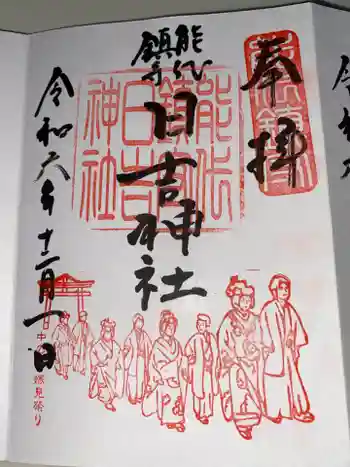 奉拝
能代
鎮守
日吉神社
能代
鎮守
日吉
神社
令和六年十二月一日
中の申
嫁見祭り